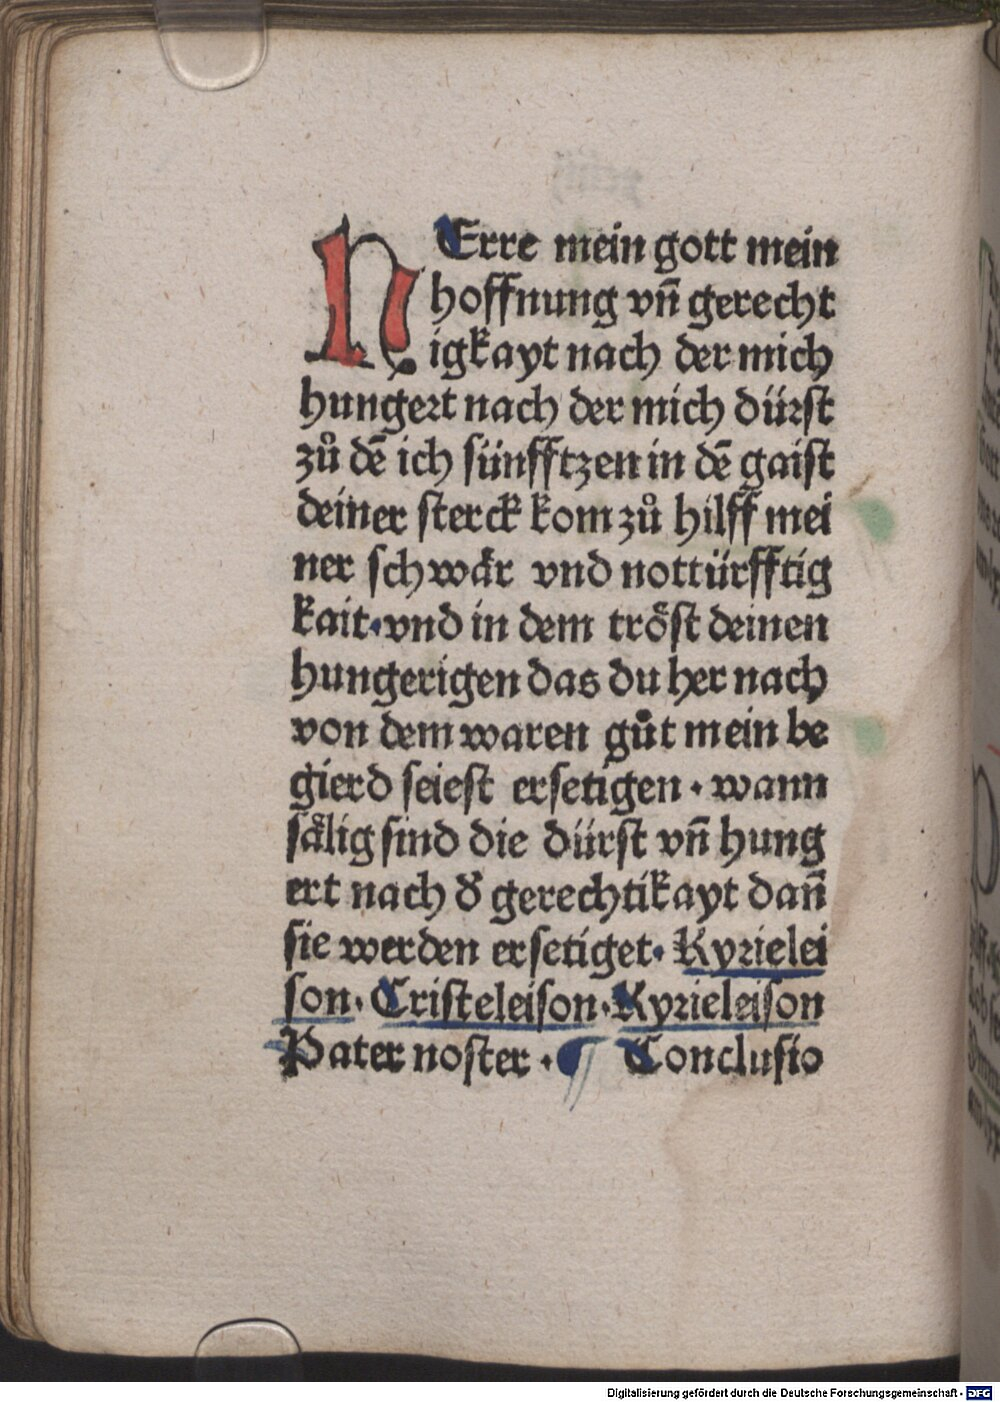 HErre mein gott mein
hoffnung vñ gerecht
igkayt nach der mich
hungert nach der mich dürst
zů dē ich sünfftzen in dē gaist
deiner sterck kom zů hilff mei
ner schwär vnd nottürfftig
kait·vnd in dem tröst deinen
hungerigen das du her nach
von dem waren gůt mein be
gierd seiest ersetigen · wann
sälig sind die dürst vñ hung
ert nach d' gerechtikayt dañ
sie werden ersetiget· Kyrielei
son· Cristeleison·Kyrieleison
Pater noster · ¶ Conclusio
Digitalisierung gefördert durch die Deutsche Forschungsgemeinschaft - DFG